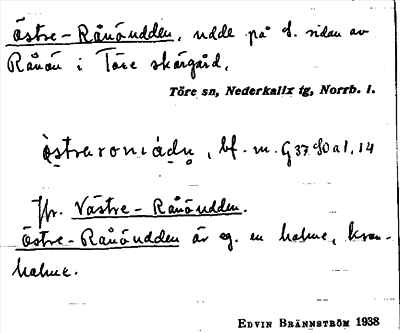 Östre-Rånöudden, udde på S. sidan av
Rånön i Töre skärgård.
Töre sn, Nederkalix tg, Norrb. l.
bf. m.
Jfr. Västre-Rånöudden.
Östre-Rånöudden är eg. en halme,
halme.
EDVIN BRÄNNSTRÖM 1938